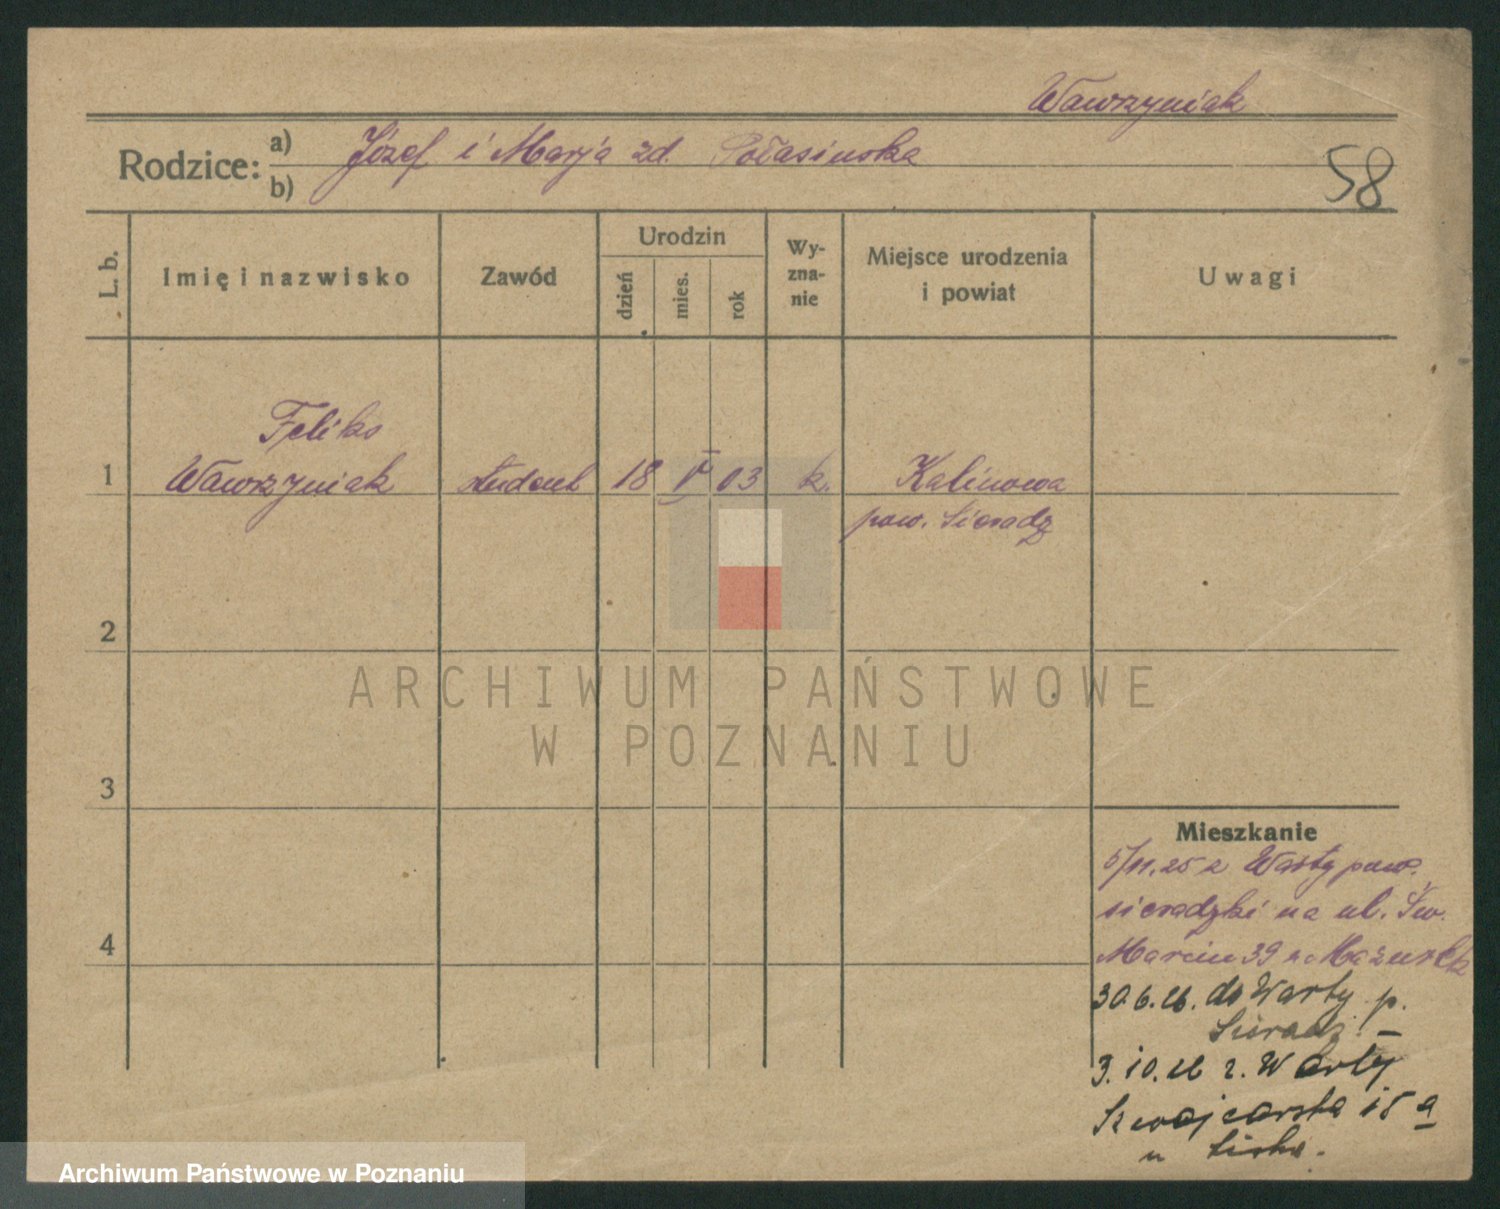 Wawrzyniak
Rodzice: a) Józef i Marja zd. Połasińska
b)
58
L. b.
Imię i nazwisko
Zawód
Urodzin
dzień
mies.
rok
Wy-
zna-
nie
Miejsce urodzenia
i powiat
Uwagi
Feliks
1 Wawrzyniak student 18 V 03 k. Kalinowa
pow. Sieradz
2
3
4
ARCHIWUM PAŃSTWOWE
W POZNANIU
Mieszkanie
5/11.25 z Warty pow.
sieradzki na ul. Św.
Marcin 39 Mazurek
30.6.26. do Warty p.
Sieradz. –
3.10.26 z Warty
Szwajcarska 15 a
u
Archiwum Państwowe w Poznaniu